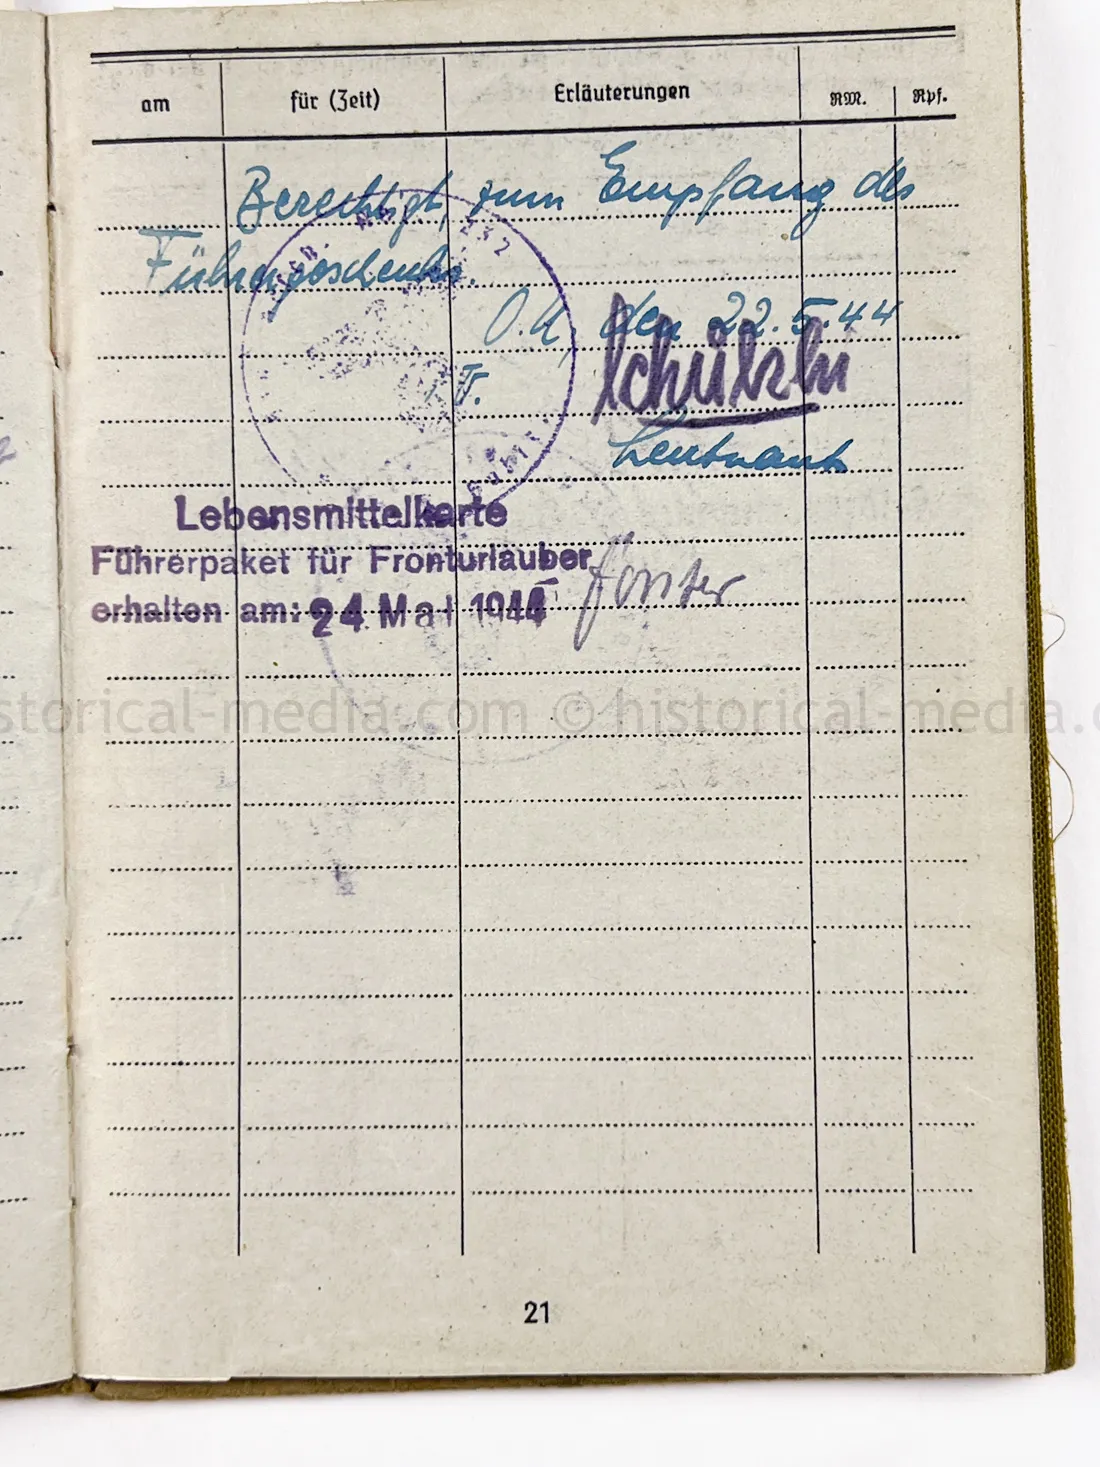 am für (Zeit) Erläuterungen RM. Rpf.
Berechtigt, zum Empfang des
Führergeschenks.
O.U, den 22.5.44
Leutnant
Lebensmittelkarte
Führerpaket für Fronturlauber
erhalten am: 24. Mai 1944 Förster
historical-media.com © historical-media.c
21